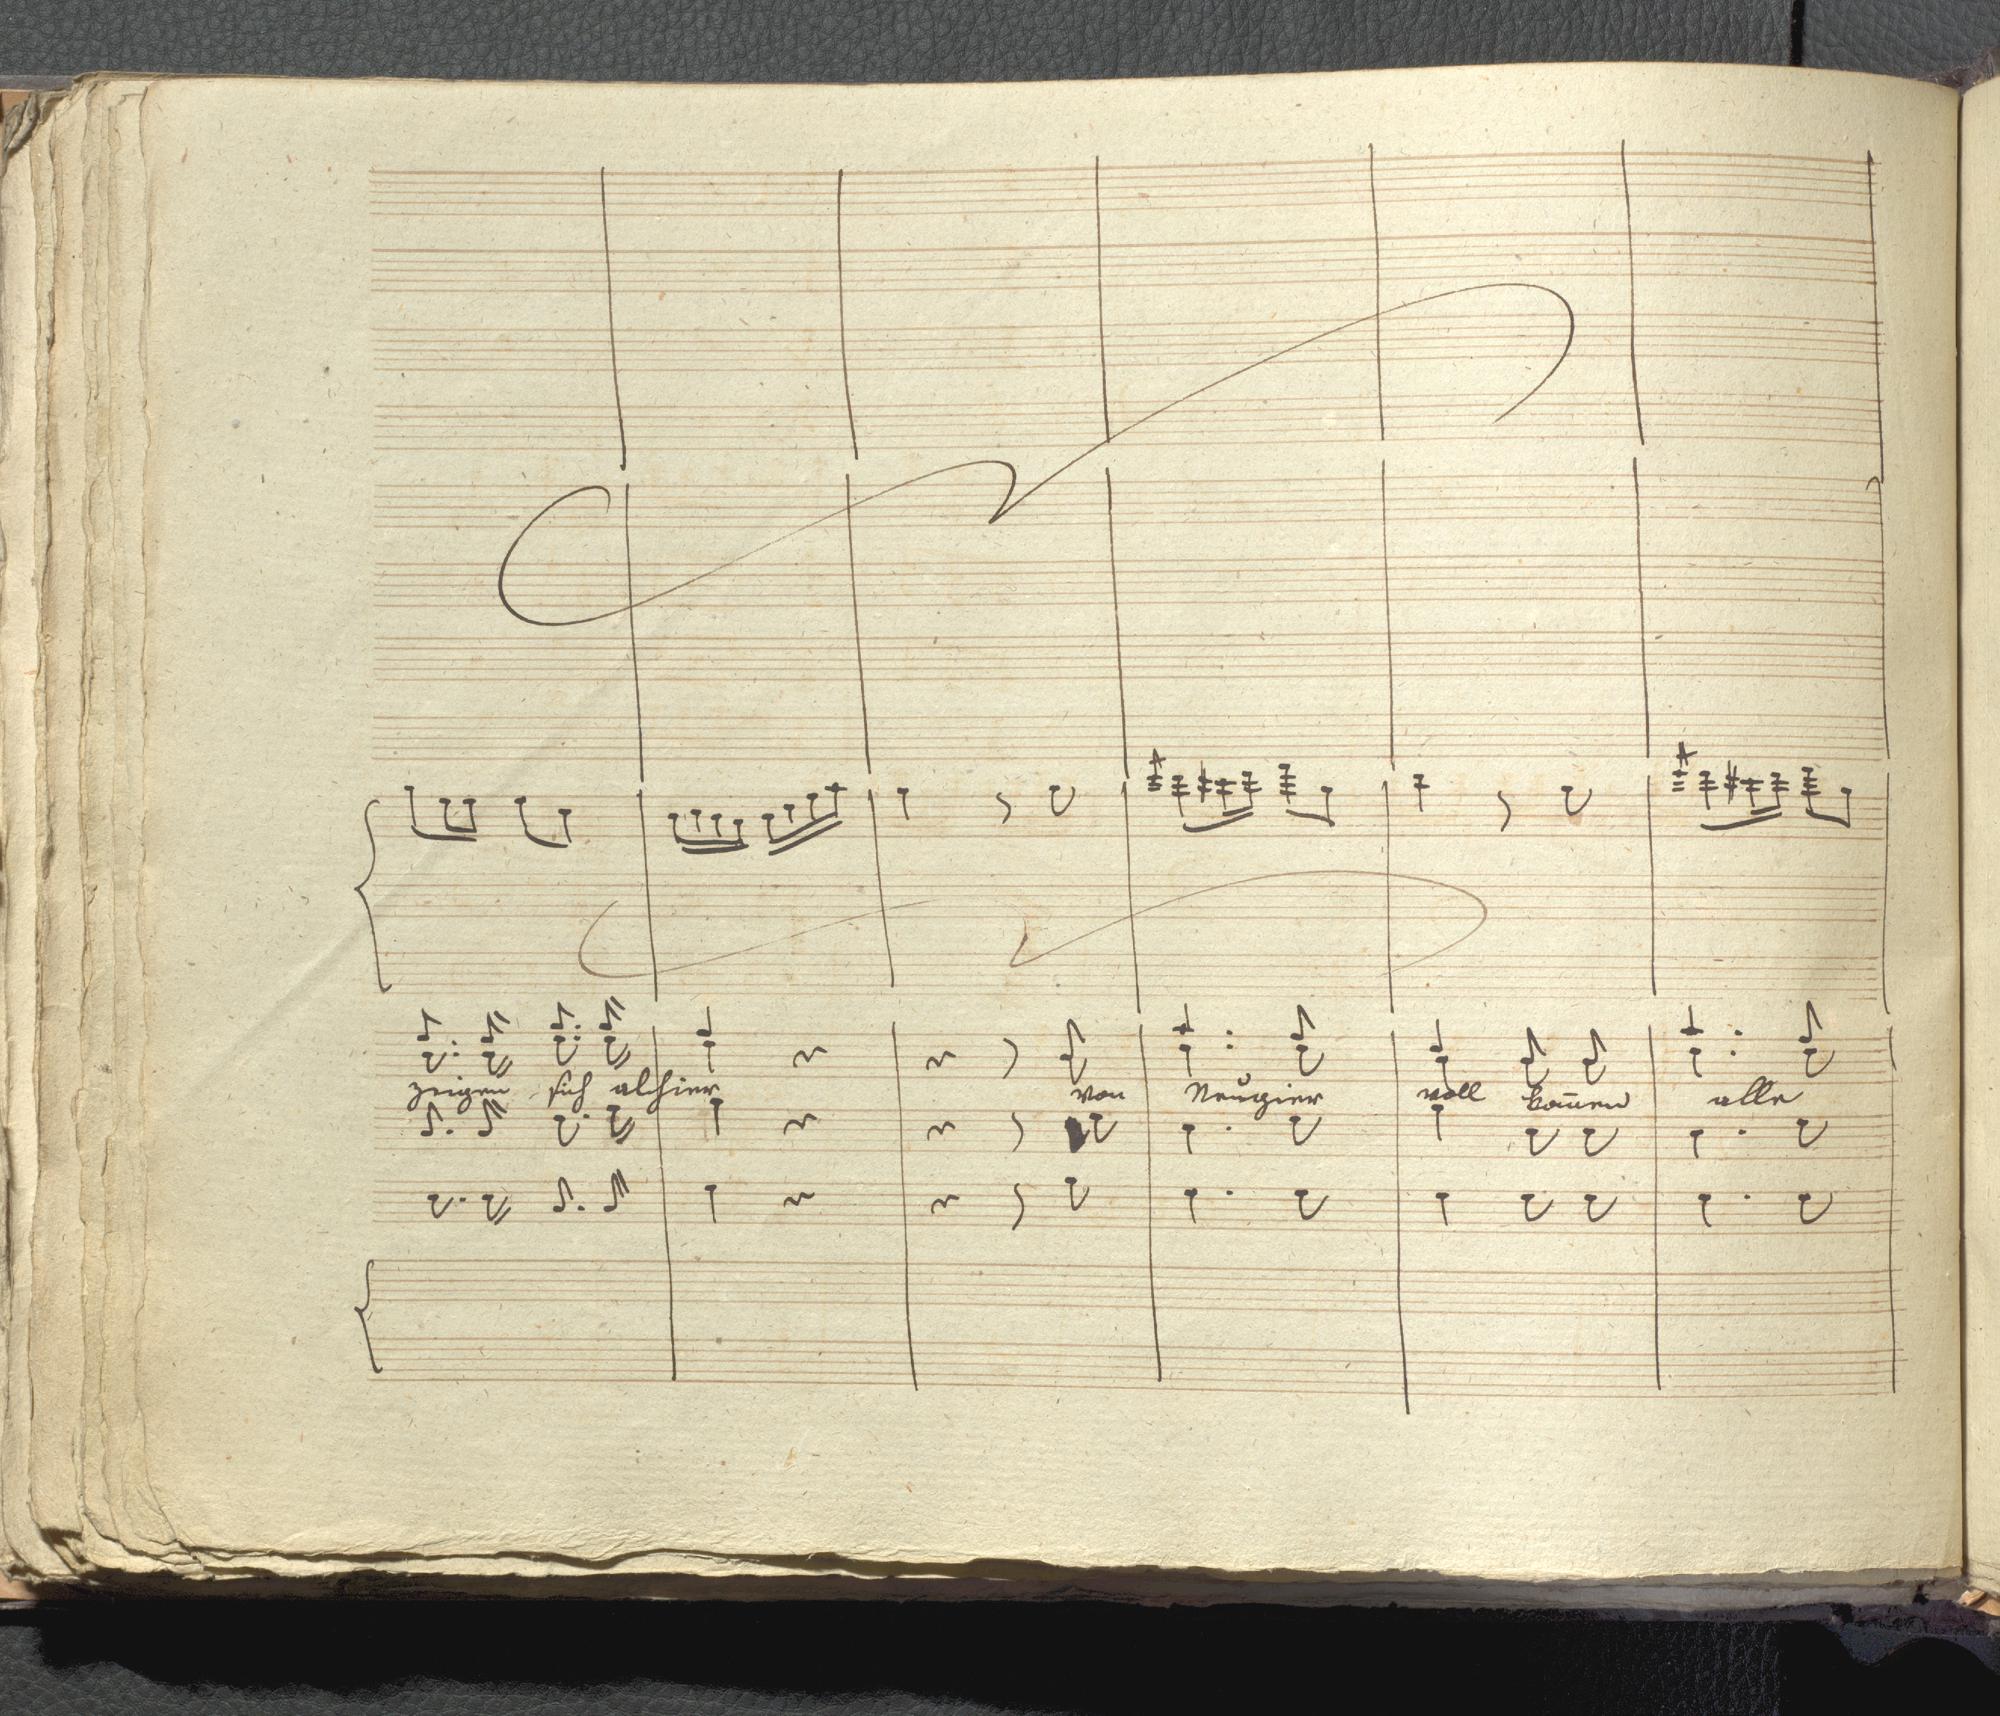 zeigen sich alhier von Neugier voll kom̅en alle